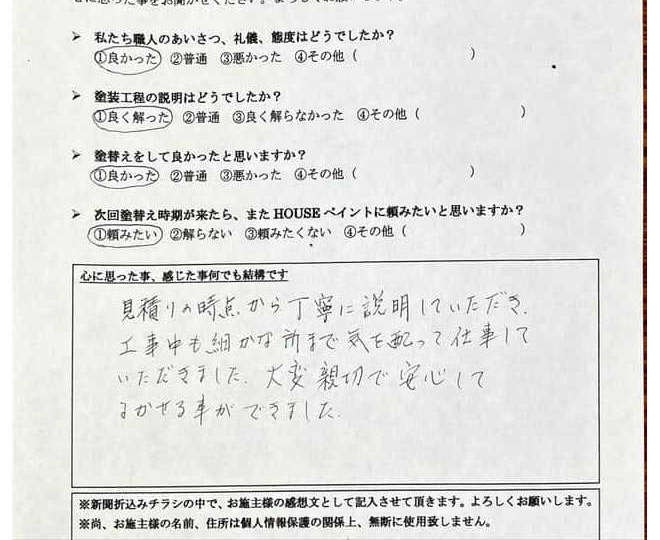 ➤ 私たち職人のあいさつ、礼儀、態度はどうでしたか?
①良かった ②普通 ③悪かった ④その他 ( )
➤ 塗装工程の説明はどうでしたか?
①良く解った ②普通 ③良く解らなかった ④その他 ( )
➤ 塗替えをして良かったと思いますか?
①良かった ②普通 ③悪かった ④その他 ( )
➤ 次回塗替え時期が来たら、また HOUSE ペイントに頼みたいと思いますか?
①頼みたい ②解らない ③頼みたくない ④その他 ( )
心に思った事、感じた事何でも結構です
見積りの時点から丁寧に説明していただき、
工事中も細かな所まで気を配って仕事して
いただきました。大変親切で安心して
まかせる事ができました。
※新聞折込みチラシの中で、お施主様の感想文として記入させて頂きます。よろしくお願いします。
※尚、お施主様の名前、住所は個人情報保護の関係上、無断に使用致しません。